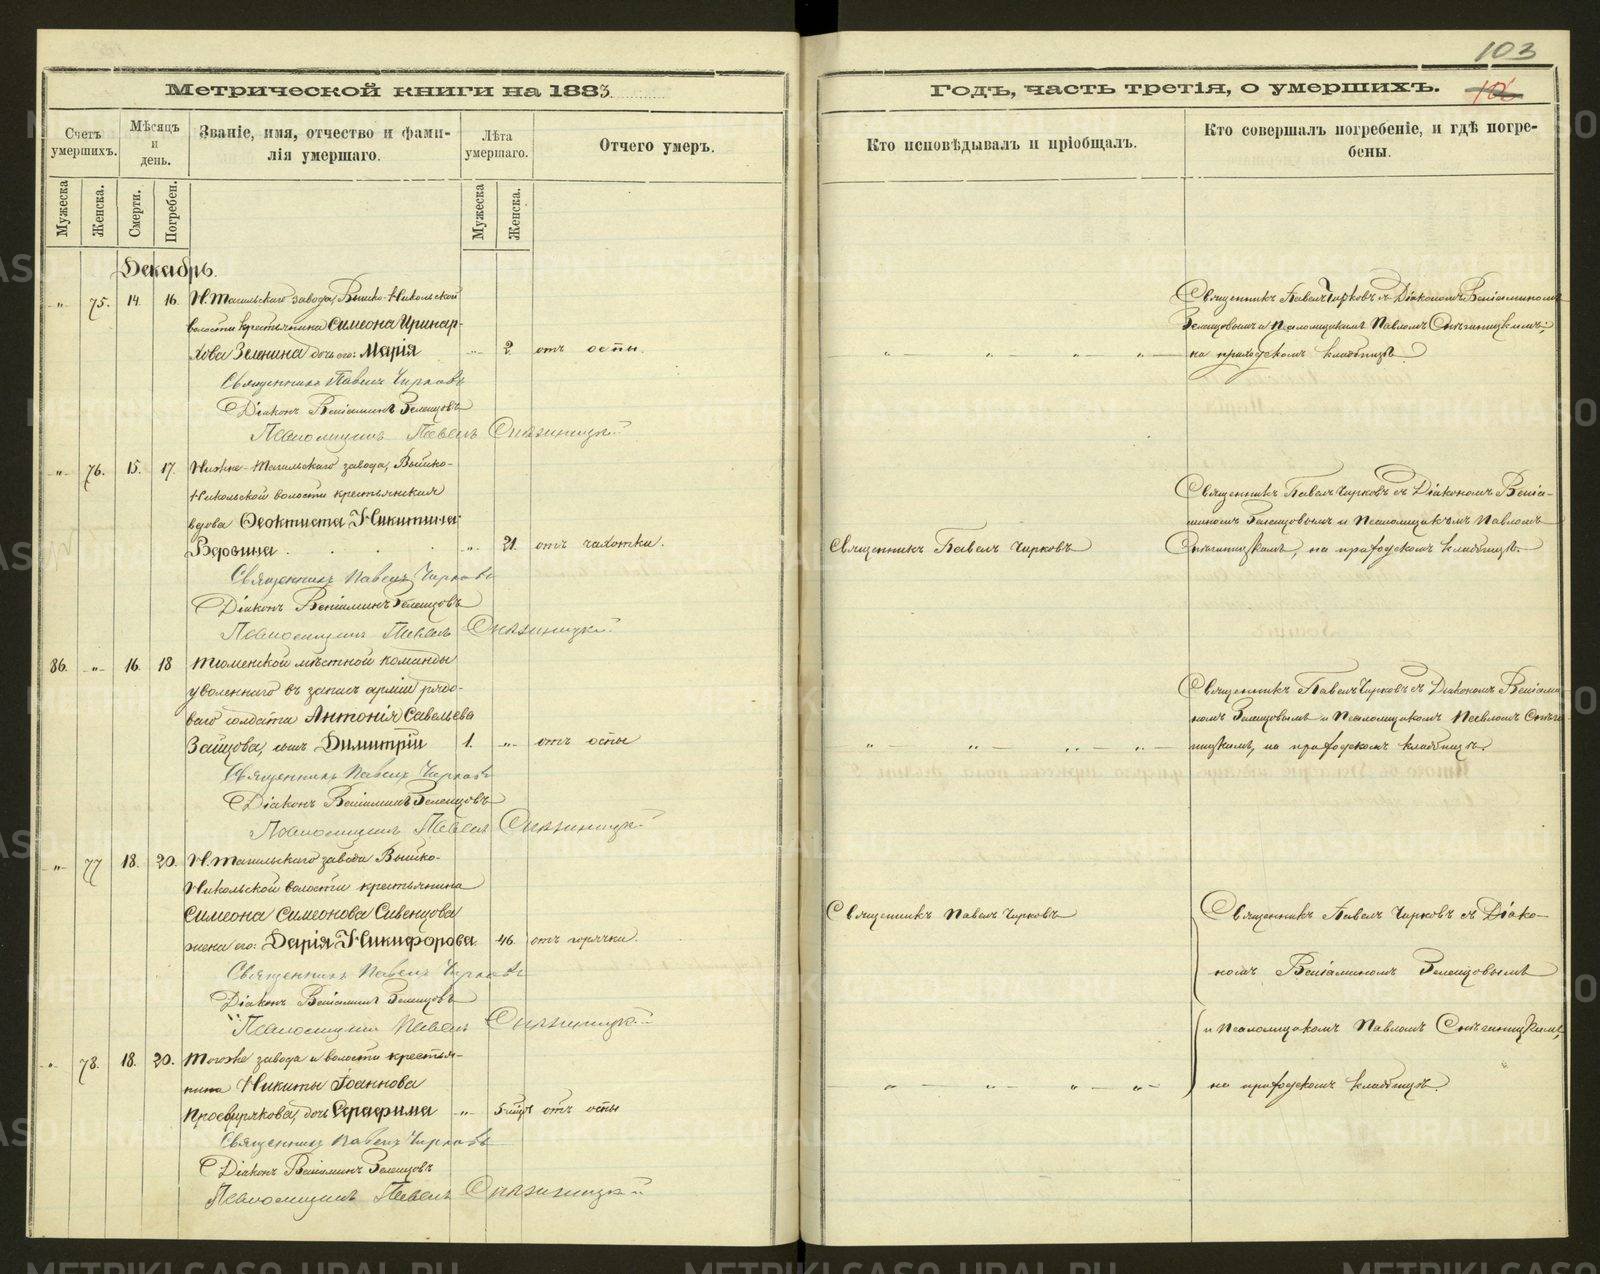 103
Метрической книги на 1883
Годъ, часть третія, о умершихъ.
106
Счетъ умершихъ.
Мѣсяцъ и день.
Званіе, имя, отчество и фами-
лія умершаго.
Лѣта умершаго.
Отчего умеръ.
Кто исповѣдывалъ и пріобщалъ.
Кто совершалъ погребеніе, и гдѣ погре-
бены.
Мужеска
Женска.
Смерти.
Погребен.
Мужеска
Женска.
Декабрь.
„ 75. 14. 16. Н.Тагильскаго завода, Выйско-Никольской
волости крестьянина Симеона Иринар-
хова Зеленина дочь его: Марія „ 2. отъ оспы.
Священникъ Павелъ Чирковъ
Діаконъ Веніаминъ Зеленцовъ
Псаломщикъ Павелъ
Священникъ Павелъ Чирковъ съ Діакономъ Веніаминомъ
Зеленцовымъ и Псаломщикомъ Павломъ
на приходскомъ кладбищѣ.
„ 76. 15. 17. Нижне-Тагильскаго завода, Выйско-
Никольской волости крестьянская
вдова Феоктиста Никитина
„ 21. отъ чахотки.
Священникъ Павелъ Чирковъ
Діаконъ Веніаминъ Зеленцовъ
Псаломщикъ Павелъ
Священникъ Павелъ Чирковъ
Священникъ Павелъ Чирковъ съ Діакономъ Веніа-
миномъ Зеленцовымъ и Псаломщикомъ Павломъ
на приходскомъ кладбищѣ.
86. „ 16. 18 Тюменской мѣстной команды
уволеннаго въ запасъ арміи рядо-
ваго солдата Антонія Савельева
Зайцова, сынъ Димитрій 1. „ отъ оспы
Священникъ Павелъ Чирковъ
Діаконъ Веніаминъ Зеленцовъ
Псаломщикъ Павелъ
Священникъ Павелъ Чирковъ съ Діакономъ Веніами-
номъ Зеленцовымъ и Псаломщикомъ Павломъ
на приходскомъ кладбищѣ.
„ 77 18. 20. Н.Тагильскаго завода Выйско-
Никольской волости крестьянина
Симеона Симеонова Сивенцова
жена его: Дарія Никифорова. 46. отъ горячки.
Священникъ Павелъ Чирковъ
Діаконъ Веніаминъ Зеленцовъ
Псаломщикъ Павелъ
Священникъ Павелъ Чирковъ
Священникъ Павелъ Чирковъ съ Діако-
номъ Веніаминомъ Зеленцовымъ
и Псаломщикомъ Павломъ
на приходскомъ кладбищѣ.
„ 78. 18. 20. Тогоже завода и волости крестья-
нина Никиты Іоаннова
Просвирякова, дочь Серафима „ 5 мѣс. отъ оспы
Священникъ Павелъ Чирковъ
Діаконъ Веніаминъ Зеленцовъ
Псаломщикъ Павелъ
METRIKI.GASO-URAL.RU